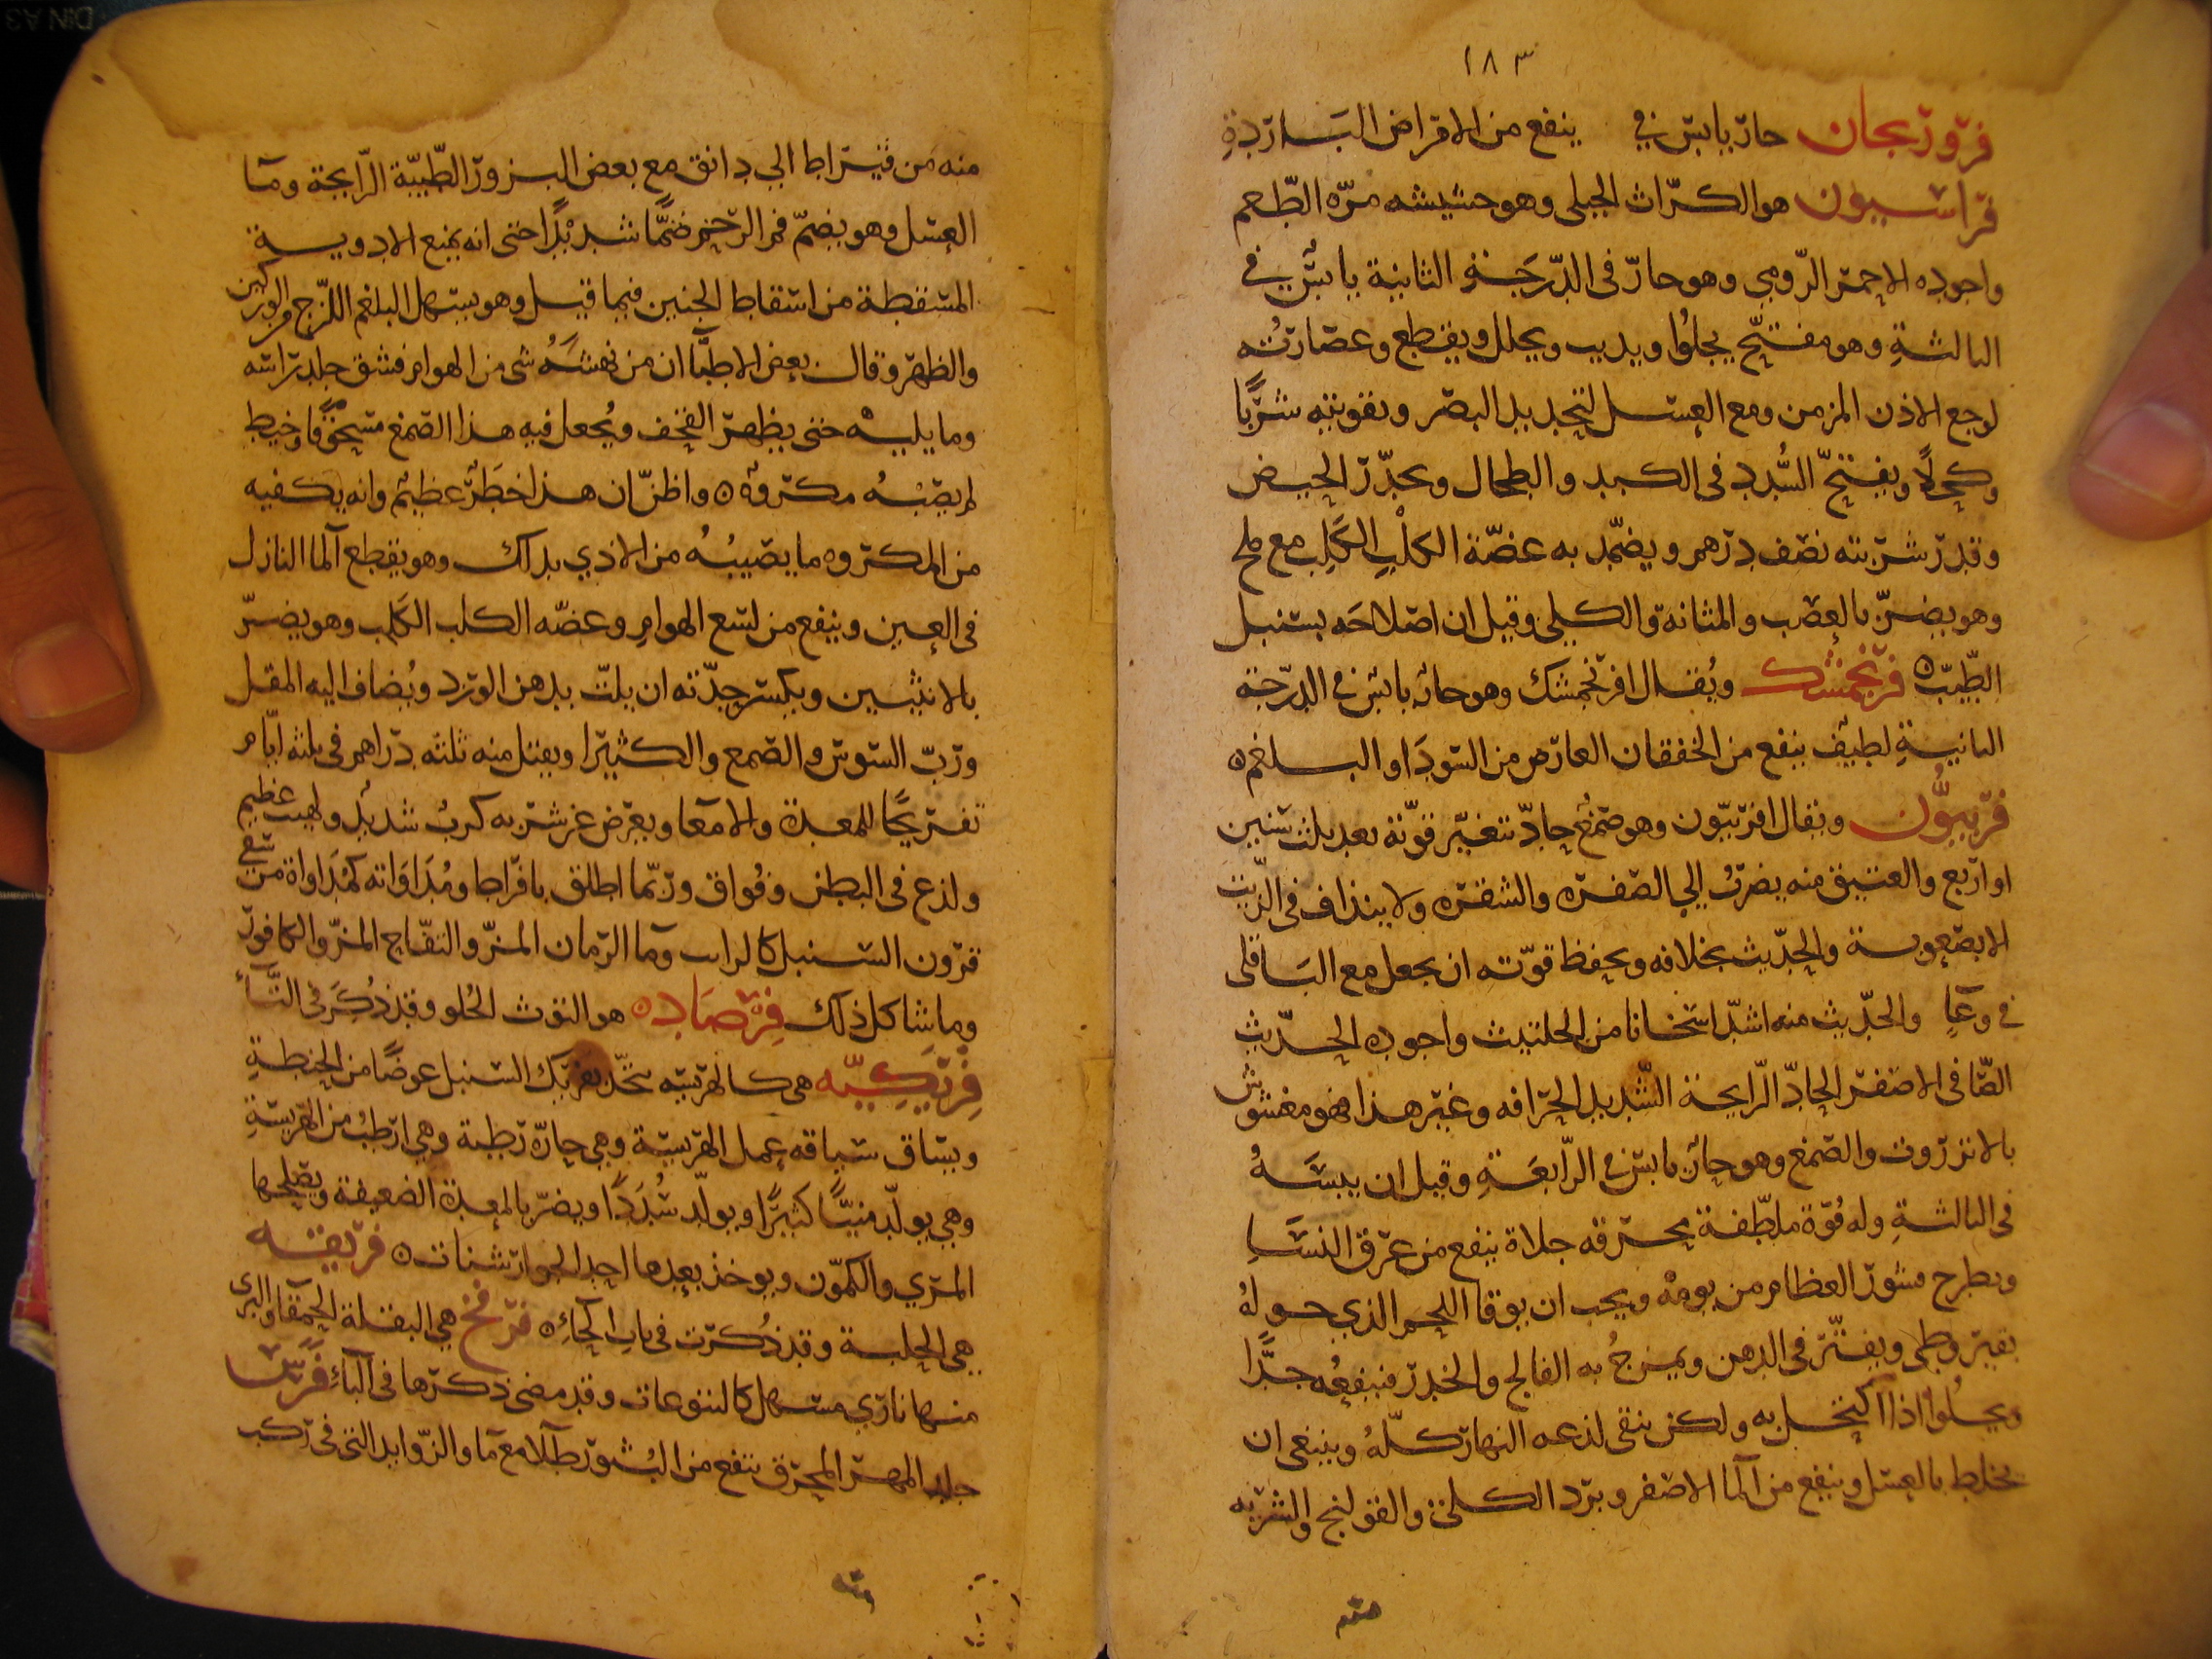 ١٨٣
فرورنجان حار يابس في ينفع من الامراض الباردة
فراسيون هو الكراث الجبلى وهو حشيشه مره الطعم
واجوده الاحمر الرومي وهو حار فى الدرجة الثانية يابس في
الثالثة وهو مفتح يجلوا ويديب ويحلل ويقطع وعصارته
لوجع الاذن المزمن ومع العسل لتحديد البصر وتقويته شربا
وكحلا ويفتح السدد فى الكبد والطحال ويحدر الحيض
وقدر شربته نصف درهم ويضمد به عضة الكلب الكلب مع ملح
وهو يضر بالعصب والمثانة والكلى وقيل ان اصلاحه بسنبل
الطيب ه فرنجمشك ويقال افرنجمشك وهو حار يابس في الدرجة
الثانية لطيف ينفع من الخفقان العارض من السودا والبلغم ه
فربيون ويقال افربيون وهو صمغ حاد تتغير قوته بعد ثلث سنين
او اربع والعتيق منه يضرب الي الصفره والشقره ولا ينداف فى الزيت
الا بصعوبة والحديث بخلافه ويحفظ قوته ان يجعل مع الباقلى
في وعاء والحديث منه اشد اسخانا من الحلتيث واجوده الحديث
الصافى الاصفر الحاد الرايحة الشديد الحرافه وغير هذا فهو مغشوش
بالانزروت والصمغ وهو حار يابس في الرابعة وقيل ان يبسه
فى الثالثة وله قوة ملطفة محرقه جلاة ينفع من عرق النسا
ويطرح قشور العظام من يومه ويجب ان يوقا اللحم الذي حوله
بقيروطى ويفتر فى الدهن ويمزج به الفالج والخدر فينفعه جدا
ويجلوا اذا اكتحل به ولكن يبقى لذعه النهار كله وينبغى ان
يخلط بالعسل وينفع من الما الاصفر وبرد الكلى والقولنج والشربه
منه
منه من قيراط الي دانق مع بعض البزور الطيبة الرايحة وما
العسل وهو يضم فم الرحم ضما شديدا حتى انه يمنع الادوية
المسقطة من اسقاط الجنين فيما قيل وهو يسهل البلغم اللزج من الوركين
والظهر وقال بعض الاطبا ان من نهشه شى من الهوام فشق جلد راسه
وما يليه حتى يظهر القحف ويجعل فيه هذا الصمغ مسحوقا وخيط
لم يصبه مكروه ه واظن ان هذا خطر عظيم وانه يكفيه
من المكروه ما يصيبه من الاذي بذلك وهو يقطع الما النازل
فى العين وينفع من لسع الهوام وعضه الكلب الكلب وهو يضر
بالانثيين ويكسر حدته ان يلت بدهن الورد ويضاف اليه المقل
ورب السوس والصمغ والكثيرا ويقتل منه ثلثه دراهم فى ثلثه ايام
تقريحا للمعدة والامعا ويعرض عن شربه كرب شديد ولهيب عظيم
ولذع فى البطن وفواق وربما اطلق بافراط ومداواته كمداواة من سقى
قرون السنبل كالراب وما الرمان المز والتفاح المز والكافور
وما شاكل ذلك فرصاد ه هو التوث الحلو وقد ذكر فى التاء
فريكيه هى كالهريسه تتخذ بفريك السنبل عوضا من الحنطة
ويساق سياقه عمل الهريسة وهي حاره رطبة وهي ارطب من الهريسة
وهي يولد منيا كثيرا ويولد سددا ويضر بالمعدة الضعيفة ويصلحها
المري والكمون ويوخذ بعدها احد الجوارشنات ه فريقه
هي الحلبة وقد ذكرت فى باب الحاء ه فرفخ هي البقلة الحمقا والبرى
منها ناري مسهل كاليتوعات وقد مضى ذكرها فى الباء فرس
جلد المهر المحرق ينفع من البثور طلا مع ما والزوايد التى فى ركب